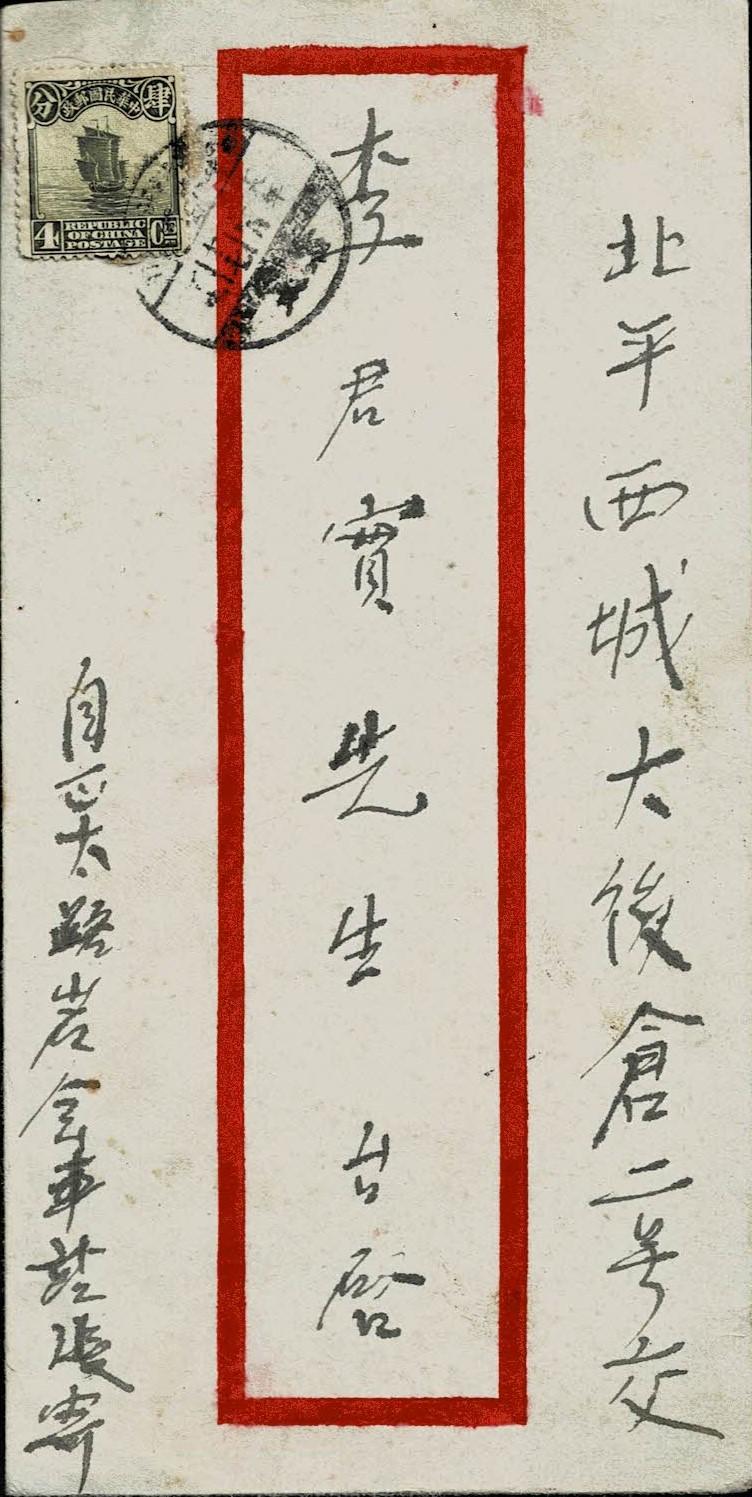 北平西城大後倉二号交
李君實先生台啓
自正太路岩會車站張寄
中華民國郵政
肆
分
4 Cts
REPUBLIC
OF CHINA
POSTAGE